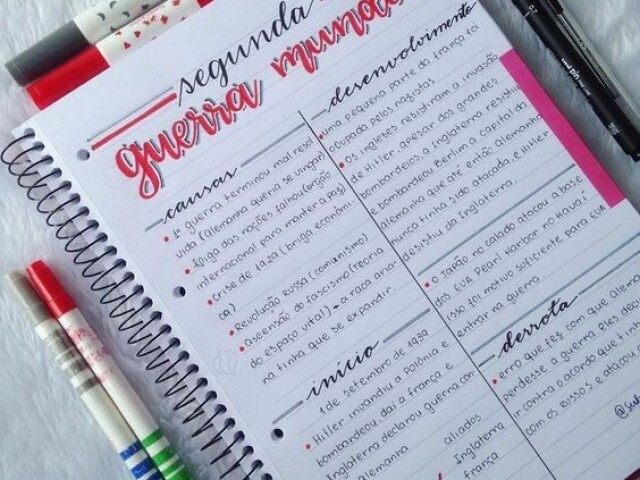 segunda
guerra mundial
causas
• 1ª guerra terminou mal resol
vida (alemanha queria se vingar)
• liga das nações falhou (órgão
internacional para manter a paz)
• Crise de 1929 (briga econômi
ca)
• Revolução russa (comunismo)
• Ascensão do fascismo (teoria
do espaço vital) → a raça aria
na tinha que se expandir.
início
1 de setembro de 1939
• Hitler invandiu a Polônia e
bombardeou, daí a frança e
Inglaterra declarou guerra con
alemanha
aliados
Inglaterra
frança
desenvolvimento
• uma pequena parte da frança foi
ocupada pelos nazistas
• os ingleses resistiram a invasão
de Hitler, apesar dos grandes
bombardeios, a Inglaterra resistiu
e bombardeou Berlim a capital da
alemanha que até então alemanha
nunca tinha sido atacada, e Hitler
desistiu da Inglaterra.
• o Japão no calado atacou a base
dos EUA Pearl Harbor no Havaí
isso foi motivo suficiente para EUA
entrar na guerra
derrota
• erro que fez com que Alem
perdesse a guerra. Eles
ir contra o acordo que
com os russos e atacou